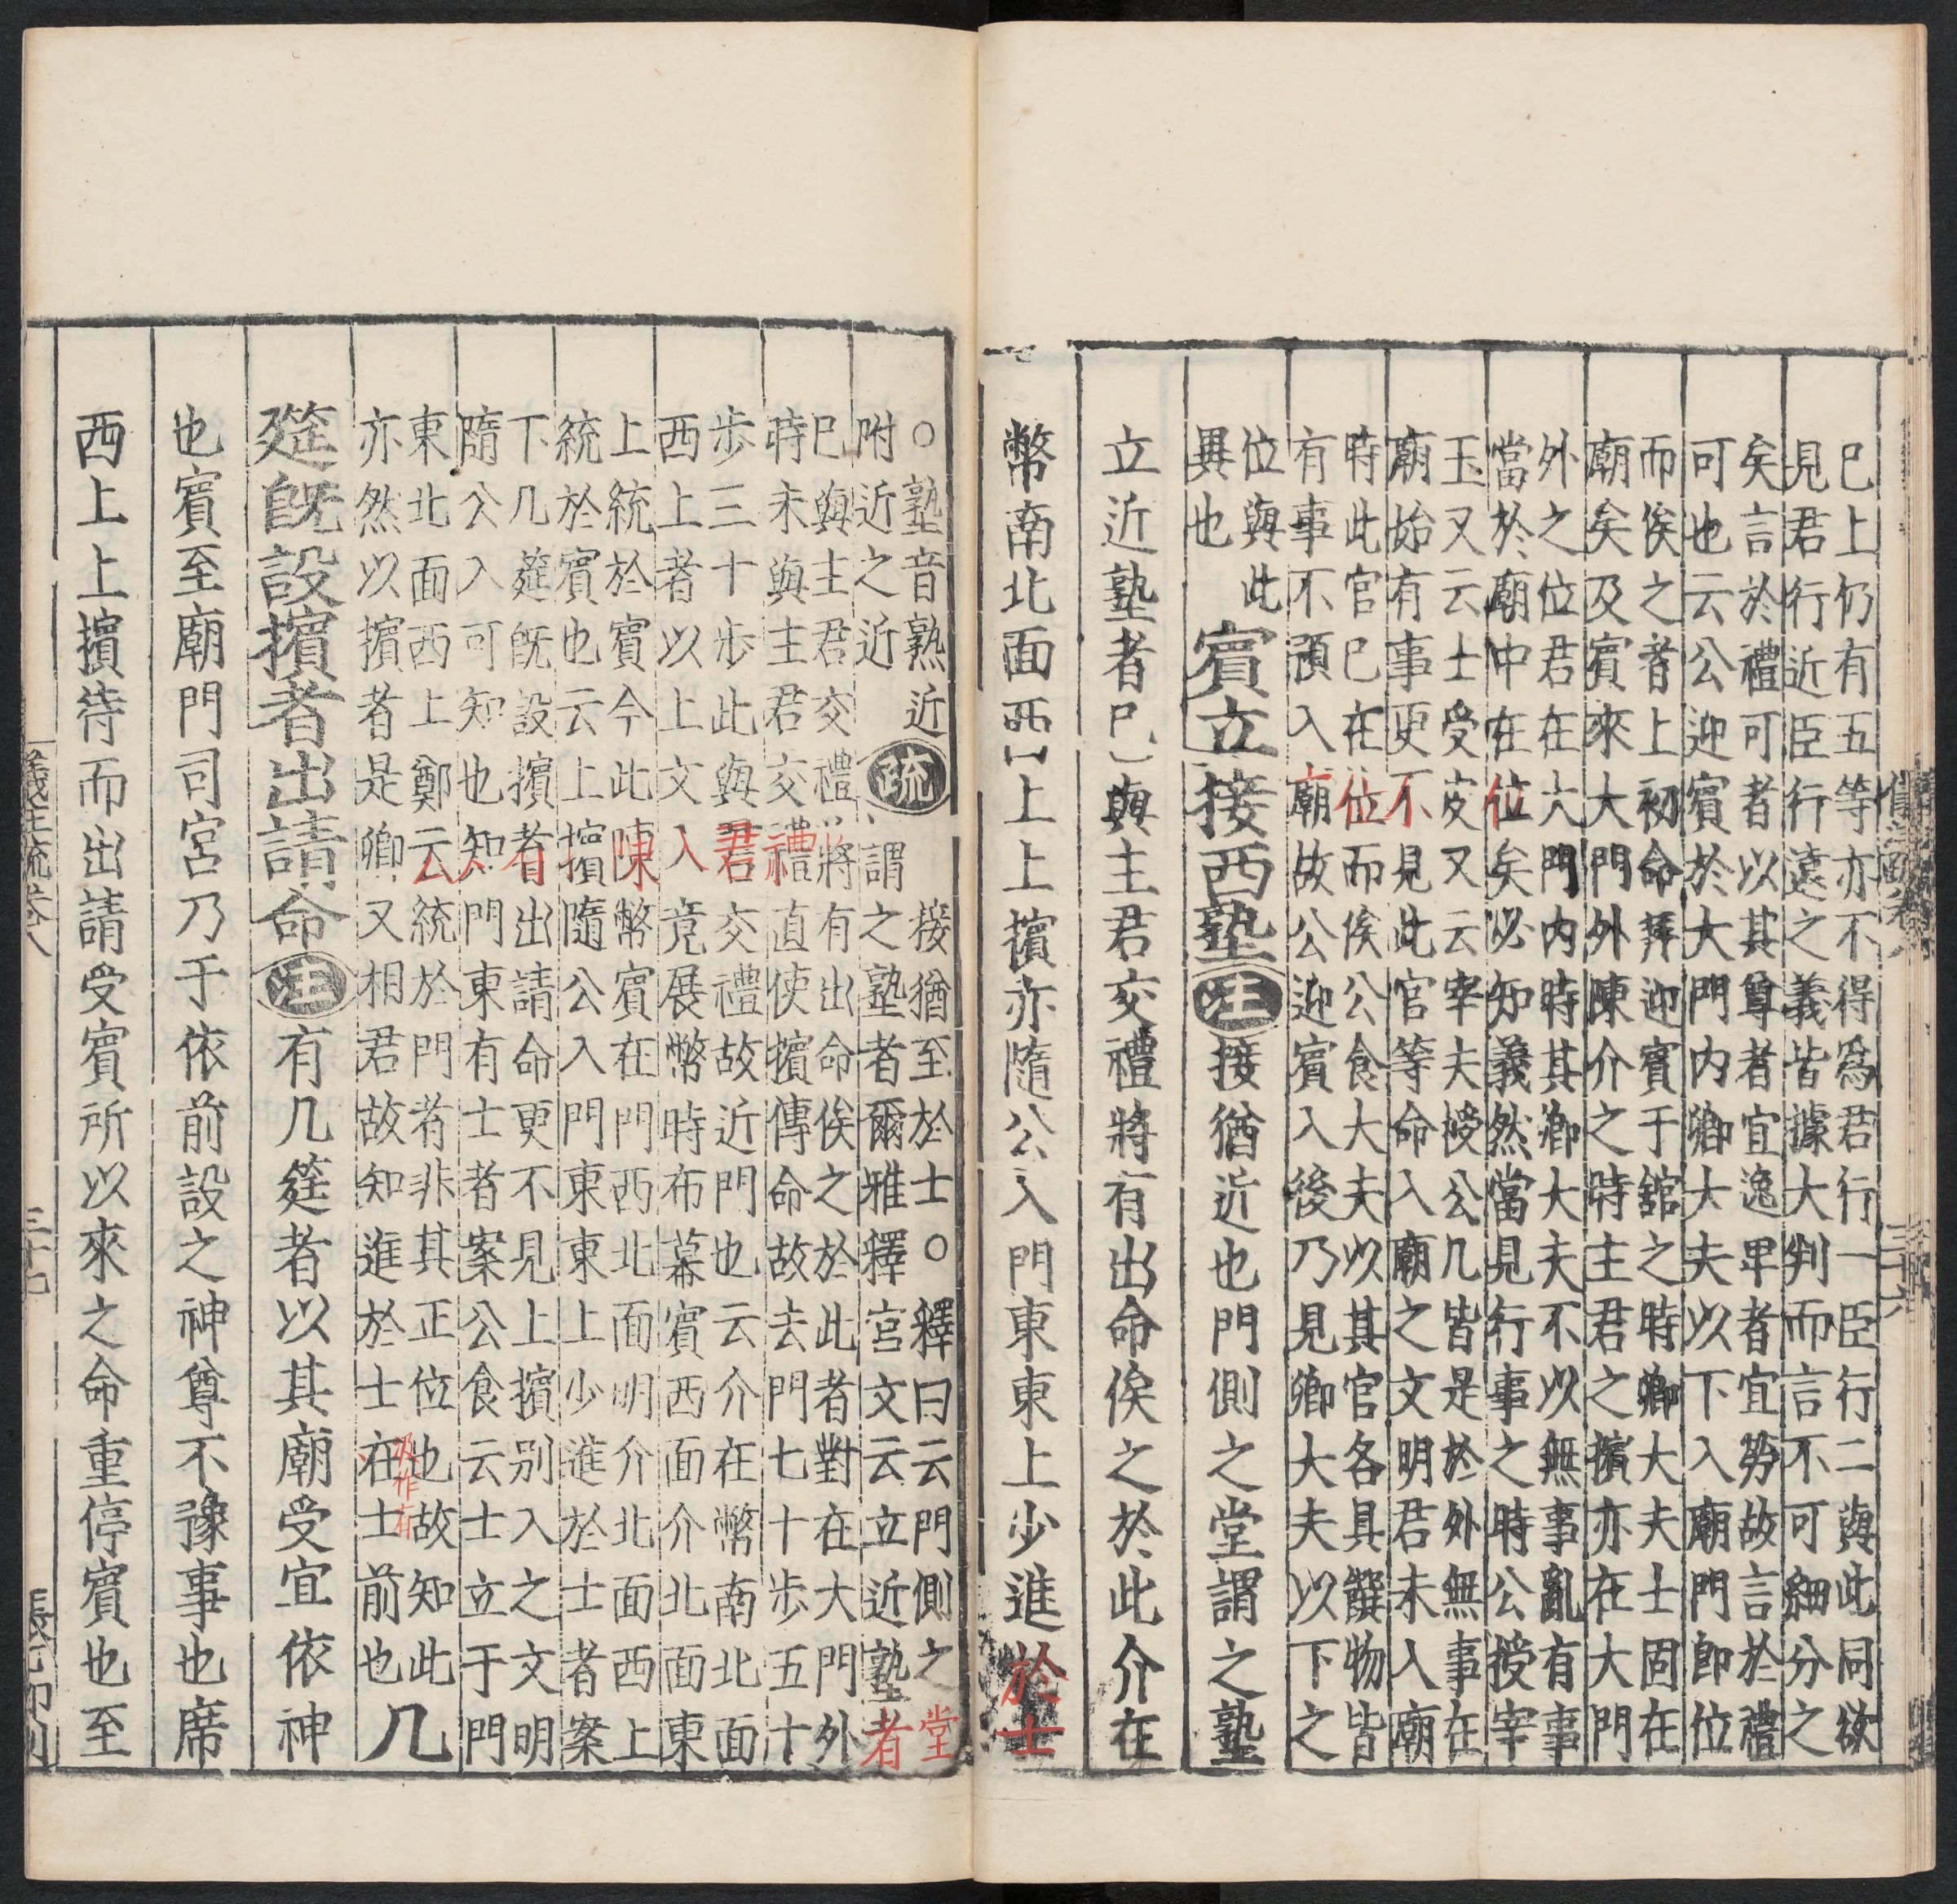 已上仍有五等亦不得為君行一臣行二與此同欲
見君行近臣行遠之義皆據大判而言不可細分之
矣言於禮可者以其尊者宜逸卑者宜勞故言於禮
可也云公迎賓於大門内卿大夫以下入廟門即位
而俟之者上初命拜迎賓于館之時卿大夫士固在
廟矣及賓來大門外陳介之時主君之擯亦在大門
外之位君在大門内時其卿大夫不以無事亂有事
當於廟中在位矣必知義然當見行事之時公授宰
玉又云士受皮又云宰夫授公几皆是於外無事在
廟始有事更不見此官等命入廟之文明君未入廟
時此官已在位而俟公食大夫以其官各具饌物皆
有事不預入廟故公迎賓入後乃見卿大夫以下之
位與此
異也
賓立接西塾注接猶近也門側之堂謂之塾
立近塾者已與主君交禮將有出命俟之於此介在
幣南北面西上上擯亦隨公入門東東上少進於士
○塾音熟近
附近之近
疏
接猶至於士○釋曰云門側之堂
謂之塾者爾雅釋宮文云立近塾者
已與主君交禮將有出命俟之於此者對在大門外
時未與主君交禮直使擯傳命故去門七十步五十
步三十步此與君交禮故近門也云介在幣南北面
西上者以上文入竟展幣時布幕賓西面介北面東
上統於賓今此陳幣賓在門西北面明介北面西上
統於賓也云上擯隨公入門東東上少進於士者案
下几筵既設擯者出請命更不見上擯别入之文明
隨公入可知也知門東有士者案公食云士立于門
東北面西上鄭云統於門者非其正位也故知此
亦然以擯者是卿又相君故知進於士在士前也
及作有
几
筵既設擯者出請命注有几筵者以其廟受宜依神
也賓至廟門司宮乃于依前設之神尊不豫事也席
西上上擯待而出請受賓所以來之命重停賓也至